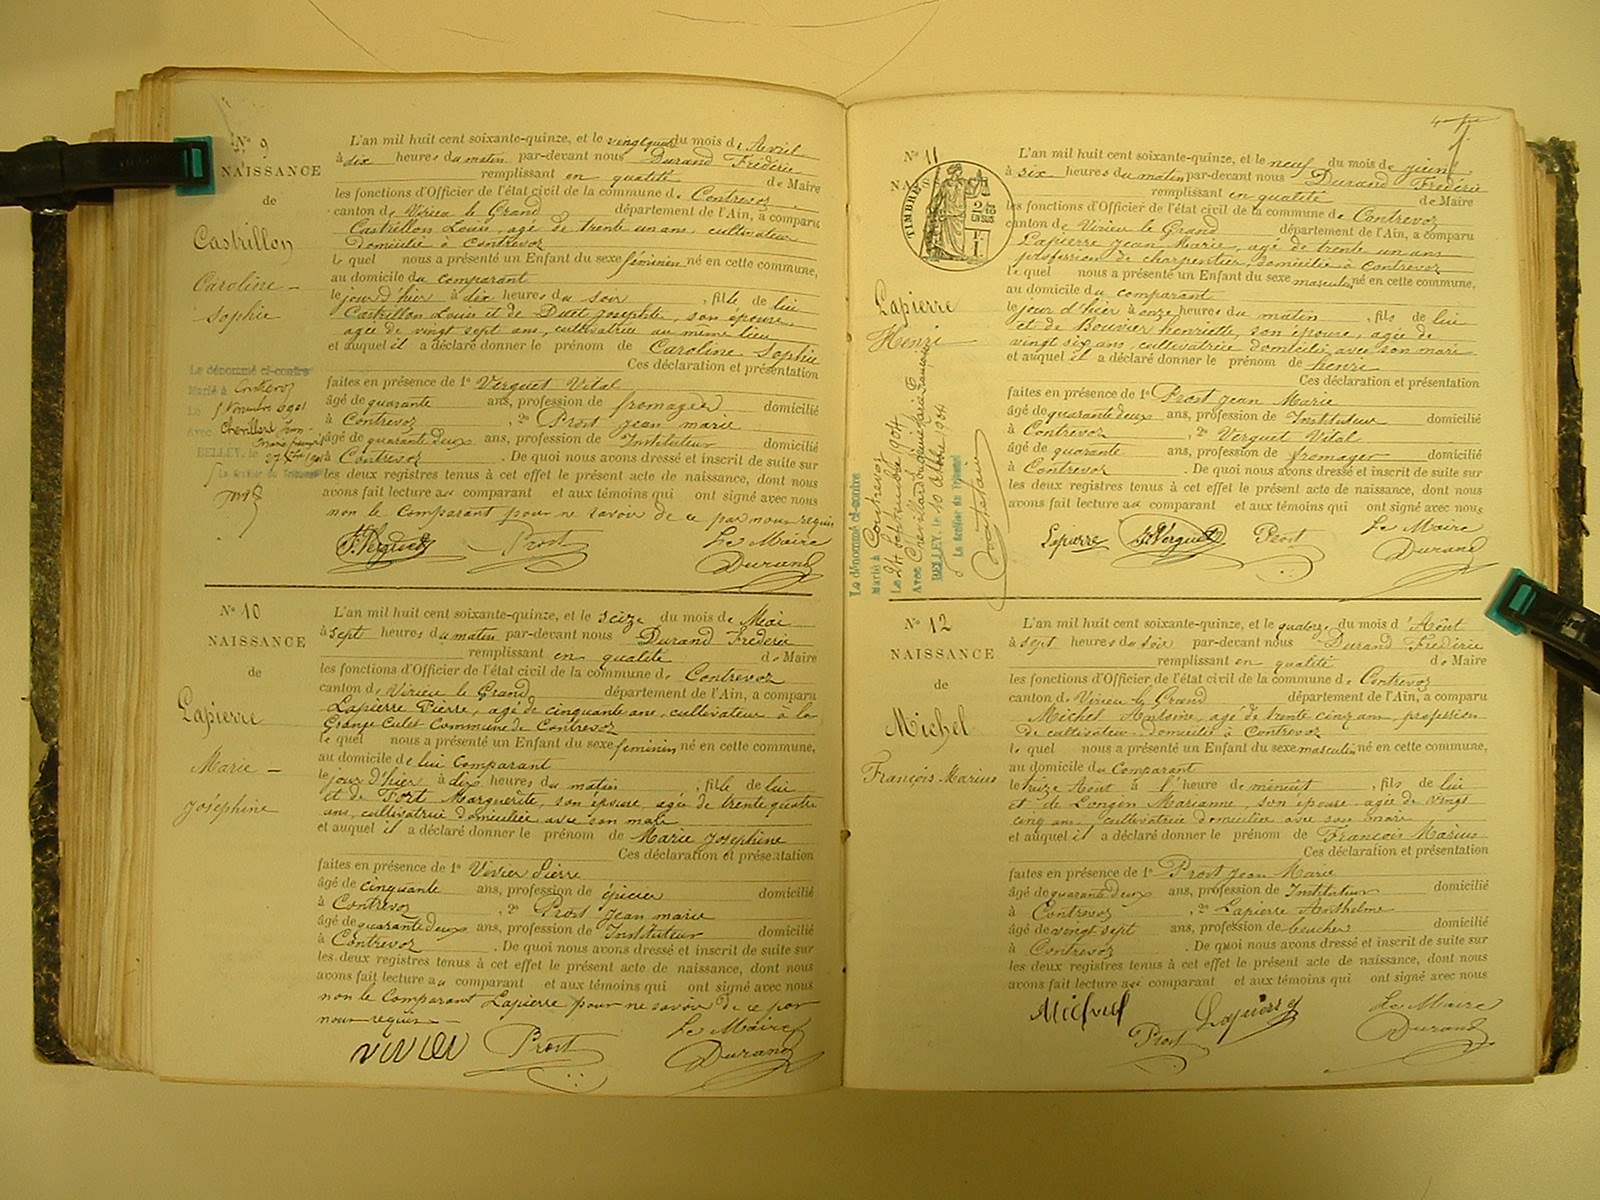 N° 9
NAISSANCE
de
Castrillon
Caroline -
Sophie
Le dénommé ci-contre
Marié à Contrevoz
Le
Avec Chevillard Jean-
BELLEY, le
L'an mil huit cent soixante-quinze, et le du mois d'Avril
à six heures du matin par-devant nous Durand Frédéric
remplissant en qualité de Maire
les fonctions d'Officier de l'état civil de la commune de Contrevoz
canton de Virieu le Grand département de l'Ain, a comparu
Castrillon Louis, agé de trente un ans, cultivateur
domicilié à Contrevoz
le quel nous a présenté un Enfant du sexe féminin né en cette commune,
au domicile du comparant
le jour d'hier à dix heures du soir, fille de lui
Castrillon Louis et de Josephte, son épouse
agée de vingt sept ans, cultivatrice au même lieu
et auquel il a déclaré donner le prénom de Caroline Sophie
Ces déclaration et présentation
faites en présence de 1° Verguet Vital
âgé de quarante ans, profession de fromager domicilié
à Contrevoz, 2° Prost jean marie
âgé de quarante deux ans, profession d'Instituteur domicilié
à Contrevoz. De quoi nous avons dressé et inscrit de suite sur
les deux registres tenus à cet effet le présent acte de naissance, dont nous
avons fait lecture au comparant et aux témoins qui ont signé avec nous
non le Comparant pour ne savoir de ce par nous requis
Verguet Prost Le Maire
Durand
N° 10
NAISSANCE
de
Lapierre
Marie -
Joséphine
L'an mil huit cent soixante-quinze, et le seize du mois de Mai
à sept heures du matin par-devant nous Durand Frédéric
remplissant en qualité de Maire
les fonctions d'Officier de l'état civil de la commune de Contrevoz
canton de Virieu le Grand département de l'Ain, a comparu
Lapierre Pierre, agé de cinquante ans, cultivateur à la
Grange Culet Commune de Contrevoz
le quel nous a présenté un Enfant du sexe féminin né en cette commune,
au domicile de lui Comparant
le jour d'hier à dix heures du matin, fille de lui
et de Fort Marguerite, son épouse, agée de trente quatre
ans, cultivatrice domiciliée avec son mari
et auquel il a déclaré donner le prénom de Marie Joséphine
Ces déclaration et présentation
faites en présence de 1° Vivier Pierre
âgé de cinquante ans, profession de épicier domicilié
à Contrevoz, 2° Prost Jean marie
âgé de quarante deux ans, profession d'Instituteur domicilié
à Contrevoz. De quoi nous avons dressé et inscrit de suite sur
les deux registres tenus à cet effet le présent acte de naissance, dont nous
avons fait lecture au comparant et aux témoins qui ont signé avec nous
non le Comparant Lapierre pour ne savoir de ce par
nous requis
VIVIER Prost Le Maire
Durand
N° 11
TIMBRE
Lapierre
Henri
Le dénommé ci-contre
Marié à Contrevoz
Le 24 Septembre 1904
Avec Chevillard
BELLEY, le 10 1904
Le Greffier du Tribunal
L'an mil huit cent soixante-quinze, et le neuf du mois de juin
à six heures du matin par-devant nous Durand Frédéric
remplissant en qualité de Maire
les fonctions d'Officier de l'état civil de la commune de Contrevoz
canton de Virieu le Grand département de l'Ain, a comparu
Lapierre jean Marie, agé de trente un ans
profession de charpentier, domicilié à Contrevoz
le quel nous a présenté un Enfant du sexe masculin né en cette commune,
au domicile du comparant
le jour d'hier à onze heures du matin, fils de lui
et de Bouvier henriette, son épouse, agée de
vingt six ans, cultivatrice domiciliée avec son mari
et auquel il a déclaré donner le prénom de henri
Ces déclaration et présentation
faites en présence de 1° Prost Jean Marie
âgé de quarante deux ans, profession d'Instituteur domicilié
à Contrevoz, 2° Verguet Vital
âgé de quarante ans, profession de fromager domicilié
à Contrevoz. De quoi nous avons dressé et inscrit de suite sur
les deux registres tenus à cet effet le présent acte de naissance, dont nous
avons fait lecture au comparant et aux témoins qui ont signé avec nous
Lapierre Verguet Prost Le Maire
Durand
N° 12
NAISSANCE
de
Michel
François Marius
L'an mil huit cent soixante-quinze, et le quatorze du mois d'Août
à sept heures du soir par-devant nous Durand Frédéric
remplissant en qualité de Maire
les fonctions d'Officier de l'état civil de la commune de Contrevoz
canton de Virieu le Grand département de l'Ain, a comparu
Michel Antoine, agé de trente cinq ans, profession
de cultivateur domicilié à Contrevoz
le quel nous a présenté un Enfant du sexe masculin né en cette commune,
au domicile du Comparant
le treize Août à l'heure de minuit, fils de lui
et de Longin Marianne, son épouse agée de vingt
cinq ans, cultivatrice domiciliée avec son mari
et auquel il a déclaré donner le prénom de François Marius
Ces déclaration et présentation
faites en présence de 1° Prost Jean Marie
âgé de quarante deux ans, profession d'Instituteur domicilié
à Contrevoz, 2° Lapierre Anthelme
âgé de vingt sept ans, profession de boucher domicilié
à Contrevoz. De quoi nous avons dressé et inscrit de suite sur
les deux registres tenus à cet effet le présent acte de naissance, dont nous
avons fait lecture au comparant et aux témoins qui ont signé avec nous
Michel Lapierre Le Maire
Prost Durand